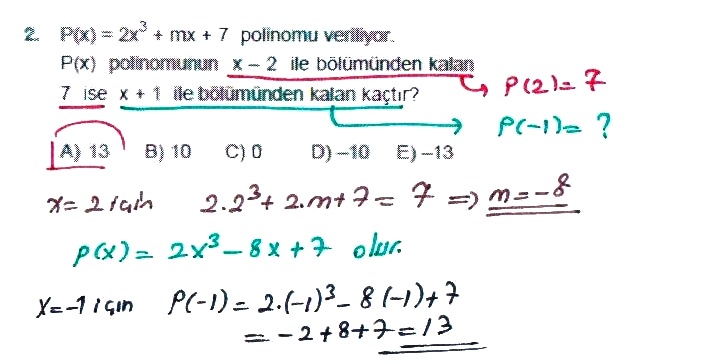 2. P(x) = 2x³ + mx + 7 polinomu veriliyor.
P(x) polinomunun x – 2 ile bölümünden kalan
7 ise x + 1 ile bölümünden kalan kaçtır?
P(2) = 7
P(-1) = ?
A) 13 B) 10 C) 0 D) –10 E) –13
x = 2 için 2.2³ + 2.m + 7 = 7 => m = -8
P(x) = 2x³ - 8x + 7 olur.
X = -1 için P(-1) = 2.(-1)³ - 8(-1) + 7
= -2 + 8 + 7 = 13